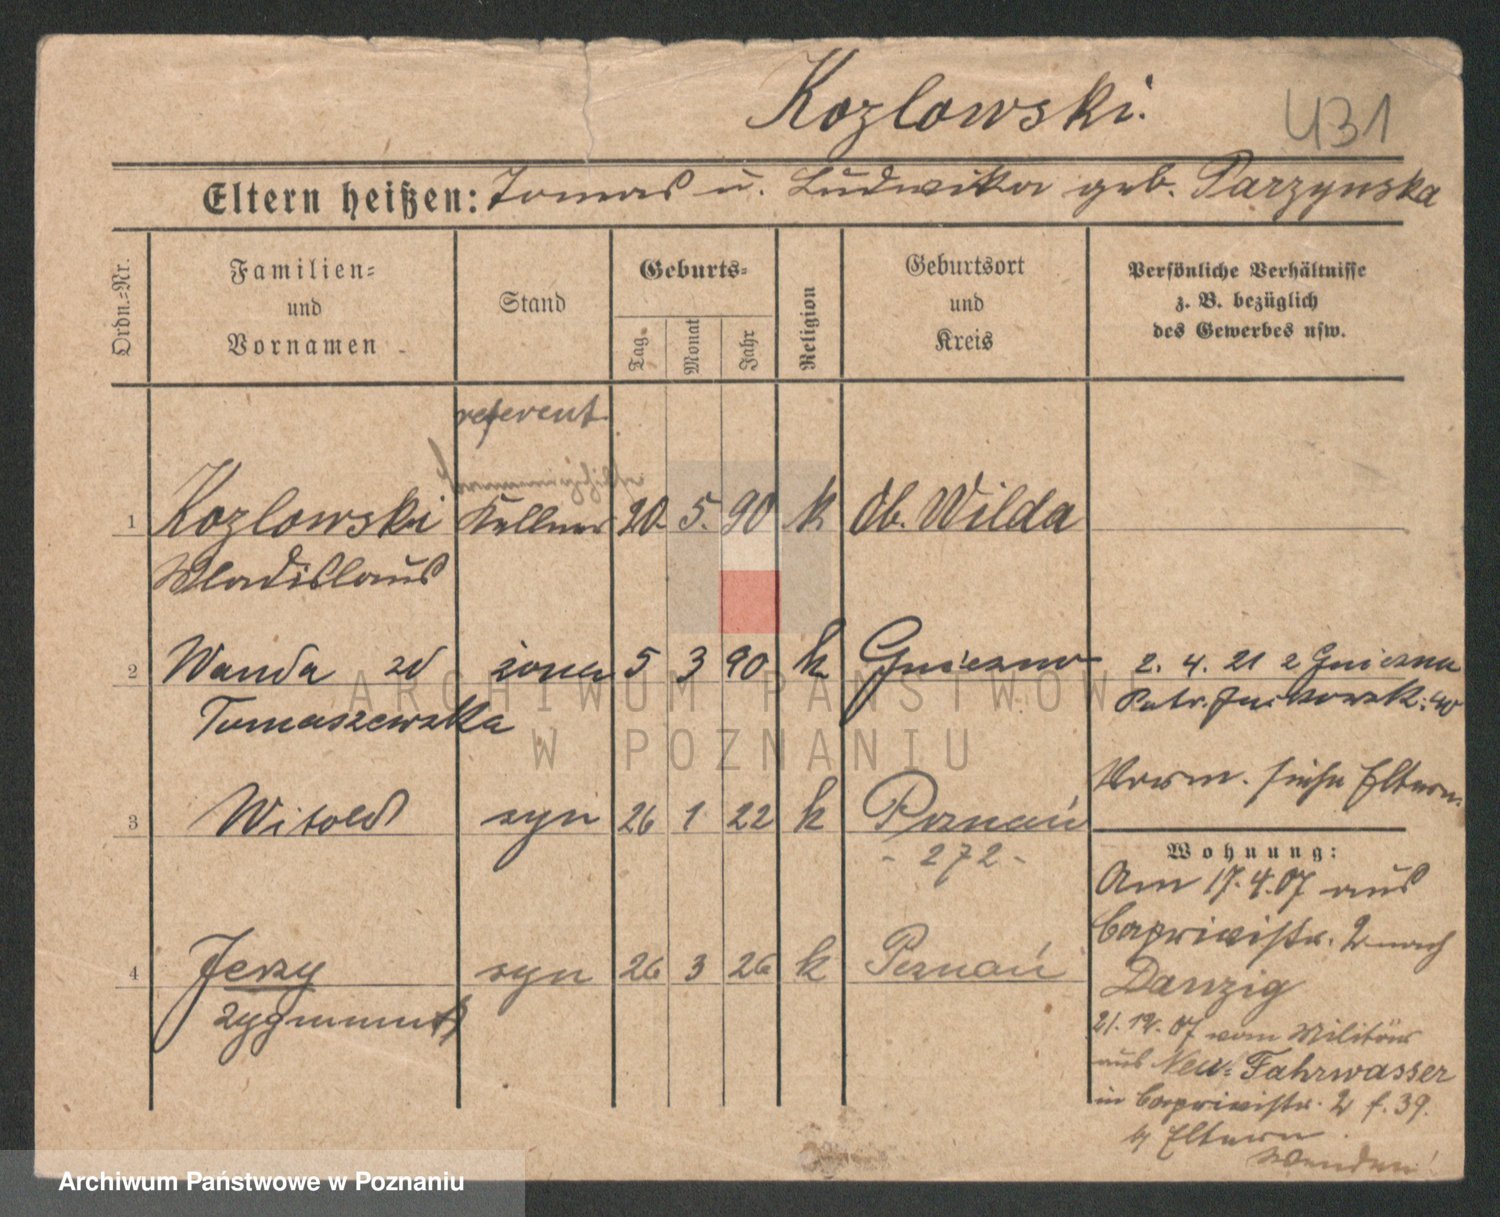 Kozlowski.
431
Eltern heißen: Tomas u. Ludwika geb. Parzynska
Ordn.-Nr.
Familien-
und
Vornamen
Stand
Geburts-
Tag
Monat
Jahr
Religion
Geburtsort
und
Kreis
Persönliche Verhältnisse
z. B. bezüglich
des Gewerbes usw.
referent
1 Kozlowski Kellner 20. 5. 90 k Ob. Wilda
Wladislaus
2 Wanda zd żona 5 3 90 k Gniezno 2. 4. 21 z Gniezna
Tomaszewska
Vorm. siehe Eltern.
3 Witold syn 26 1 22 k Poznań
- 272 -
Wohnung:
Am 17.4.07 aus
Caprivistr. 2 nach
4 Jerzy syn 26 3 26 k Poznań
Danzig
Zygmunt
vom Militär
aus Neu-Fahrwasser
in Caprivistr. 2 f. 39.
b/ Eltern.
Wenden!
ARCHIWUM PAŃSTWOWE
W POZNANIU
Archiwum Państwowe w Poznaniu